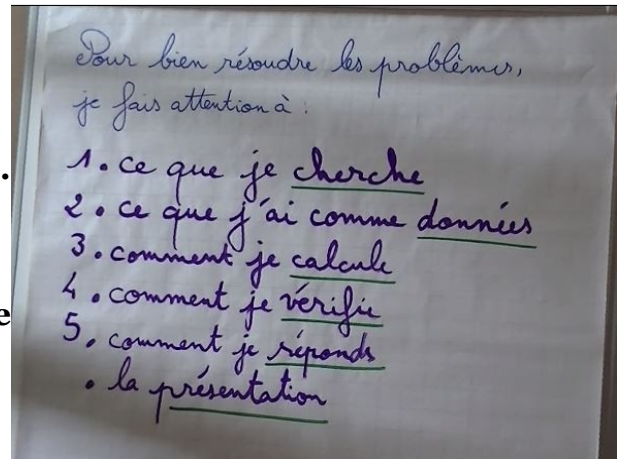 Pour bien résoudre les problèmes,
je fais attention à :
1. ce que je cherche
2. ce que j'ai comme données
3. comment je calcule
4. comment je vérifie
5. comment je réponds
. la présentation